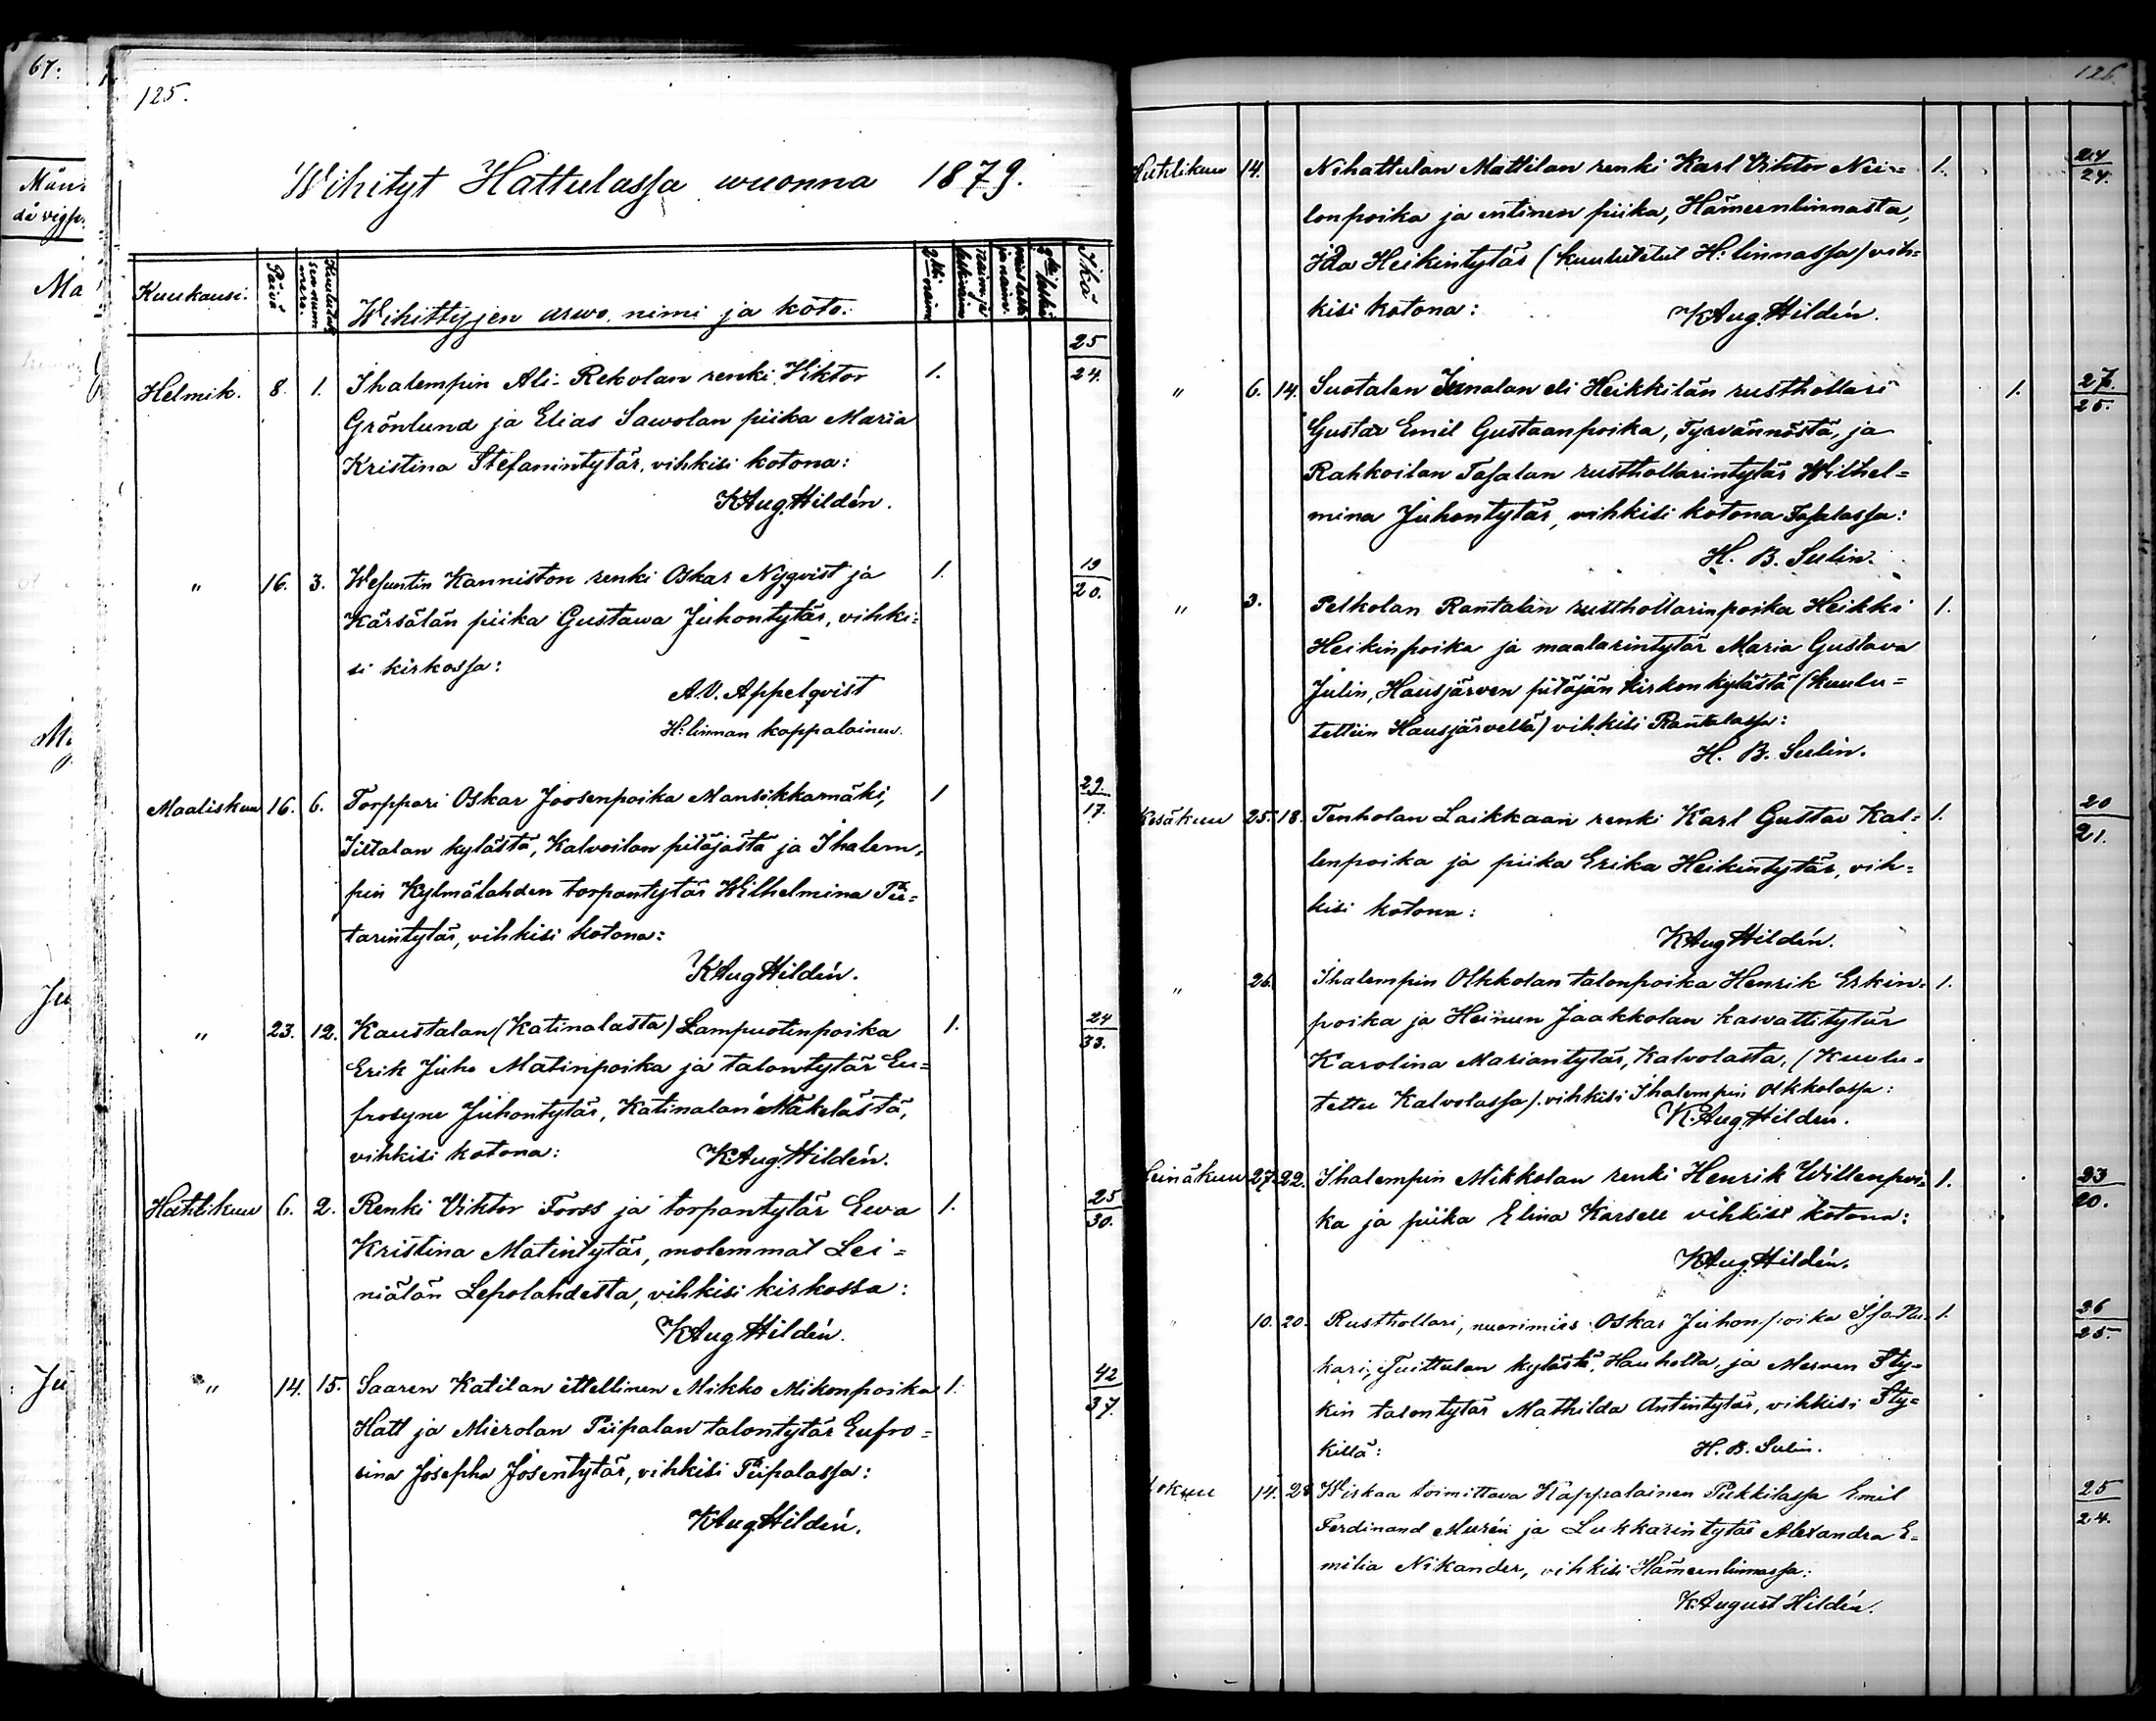 67.
125.
Wihityt Hattulassa wuonna 1879.
Kuukausi. Päivä Kuulutuksen numero. Wihittyjen arwo, nimi ja koto. Ikä
25
Helmik. 8. 1. Ihalempin Ali-Rekolan renki Viktor 1. 24.
Grönlund ja Elias Sawolan piika Maria
Kristina Stefanintytär, vihkisi kotona:
K Aug. Hildén.
" 16. 3. Wesuntin Kanniston renki Oskar Nyqvist ja 1. 19/20.
Kärsälän piika Gustawa Juhontytär, vihki=
si kirkossa:
A.V. Appelqvist
H:linnan kappalainen.
Maaliskuu 16. 6. Torppari Oskar Joosenpoika Mansikkamäki, 1 29./17.
kylästä, Kalvoilan pitäjästä ja Ihalem=
pin Kylmälahden torpantytär Wilhelmina
tarintytär, vihkisi kotona:
K Aug Hildén.
" 23. 12. Kaustalan (Katinalasta) Lampuotinpoika 1. 24/33.
Erik Juho Matinpoika ja talontytär Eu=
frosyne Juhontytär, Katinalan Mäkelästä,
vihkisi kotona: K Aug. Hildén.
Huhtikuu 6. 2. Renki Viktor Forss ja torpantytär Ewa 1. 25/30.
Kristina Matintytär, molemmat Lei=
niälän Lepolahdesta, vihkisi kirkossa:
K Aug Hildén.
" 14. 15. Saaren Katilan ittellinen Mikko Mikonpoika 1. 42/37.
Hatt ja Mierolan Piipalan talontytär Eufro=
sina Josepha Josentytär, vihkisi Piipalassa:
K Aug Hildén.
126.
Huhtikuu 14. Nihattulan Mattilan renki Karl Viktor 1. 24/24.
lonpoika ja entinen piika, Hämeenlinnasta,
Ida Heikintytär (kuulutetut H:linnassa) vih=
kisi kotona: K Aug. Hildén.
" 6. 14. Suotalan eli Heikkilän rusthollari 1. 27./25.
Gustav Emil Gustaanpoika, Tyrvännöstä, ja
Rahkoilan Tasalan rusthollarintytär Wilhel=
mina Juhontytär, vihkisi kotona Tasalassa:
H. B. Sulin.
" 3. Pelkolan Rantalan rusthollarinpoika Heikki 1.
Heikinpoika ja maalarintytär Maria Gustava
Julin, Hausjärven pitäjän kirkonkylästä (kuulu=
tettiin Hausjärvellä) vihkisi Rantalassa:
H. B. Sulin.
Kesäkuu 25. 18. Tenholan Laikkaan renki Karl Gustav Kal= 1. 20/21.
lenpoika ja piika Erika Heikintytär, vih=
kisi kotona:
K Aug Hildén.
" 26. Ihalempin Olkkolan talonpoika Henrik Erkin= 1.
poika ja Heinun Jaakkolan kasvattitytär
Karolina Mariantytär, Kalvolasta, (Kuulu=
tettu Kalvolassa). vihkisi Ihalempin Olkkolassa:
K. Aug. Hildén.
Heinäkuu 27. 22. Ihalempin Mikkolan renki Henrik Willenpoi= 1. 23/20.
ka ja piika Elina Karsell vihkisi kotona:
K Aug. Hildén.
" 10. 20. Rusthollari, nuorimies Oskar Juhonpoika 1. 26/25.
kari, Tuittulan kylästä, Hauholta, ja Merven Sty=
kin talontytär Mathilda Antintytär, vihkisi Sty=
killä: H. B. Sulin.
14. 28 Wirkaa toimittava Kappalainen Pukkilassa Emil 25/24.
Ferdinand Murén ja Lukkarintytär Alexandra E=
milia Nikander, vihkisi Hämeenlinnassa:
K August Hildén.